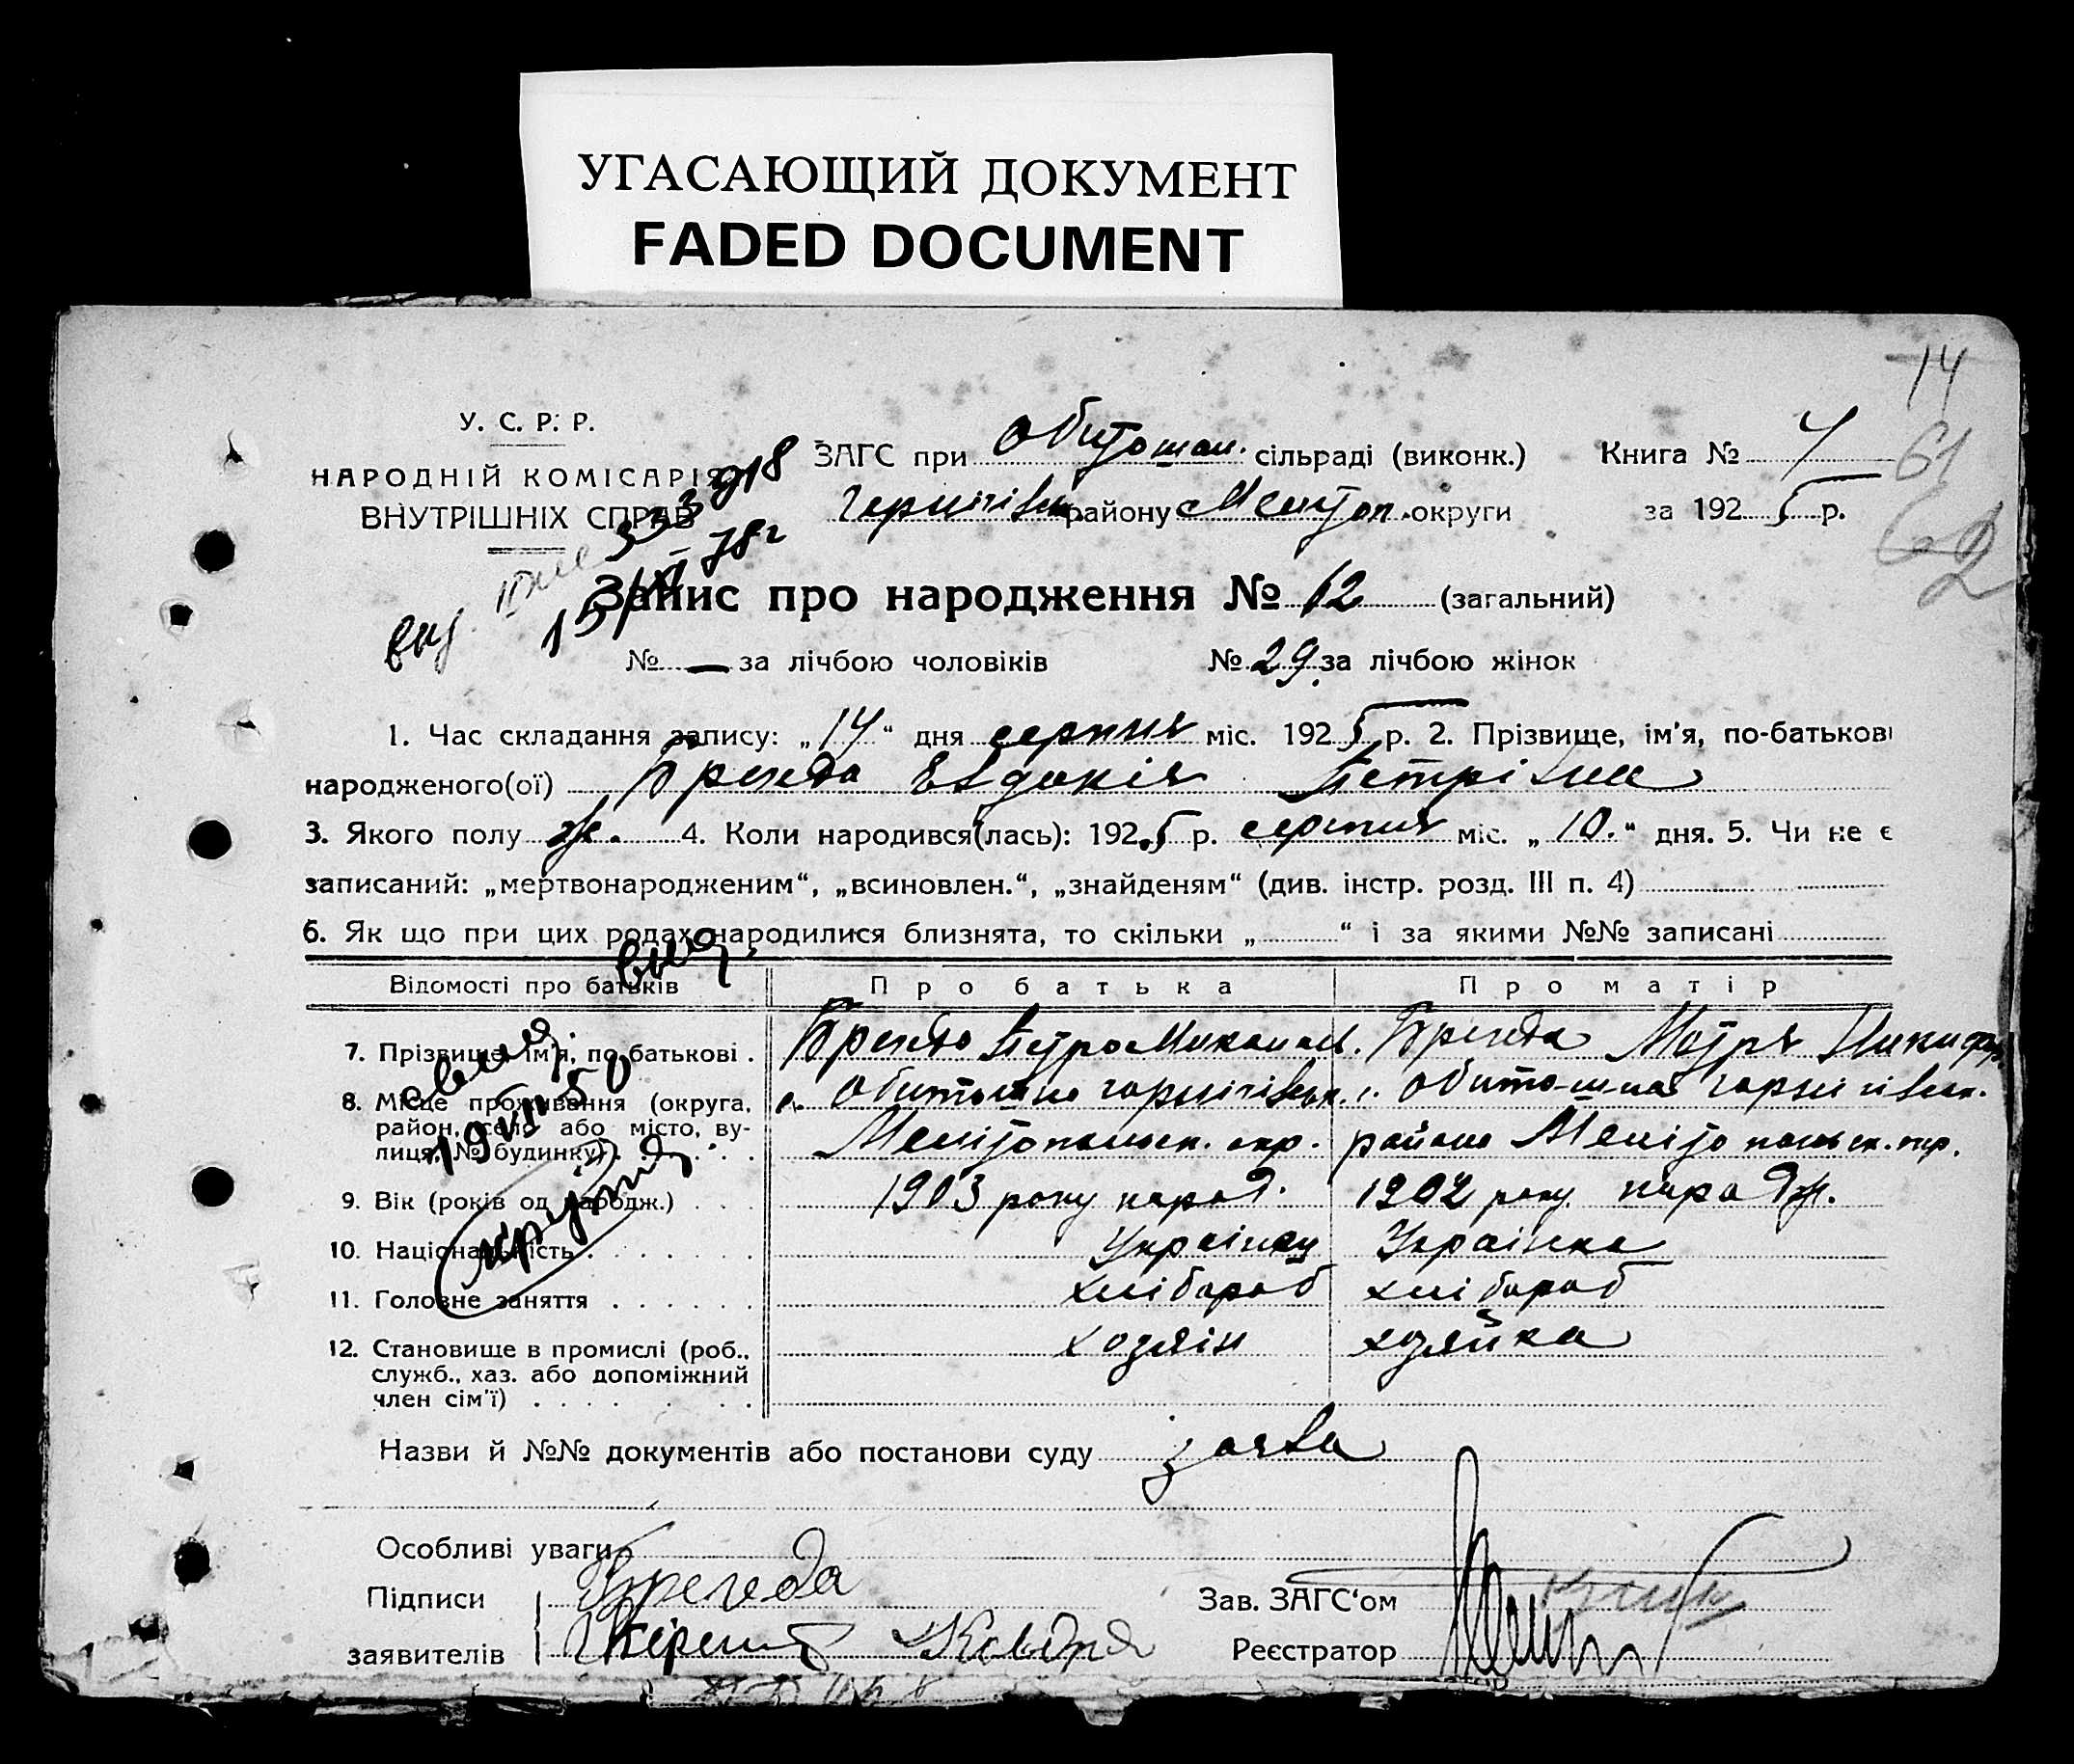 УГАСАЮЩИЙ ДОКУМЕНТ
FADED DOCUMENT
14
61
62
У. С. Р. Р.
НАРОДНІЙ КОМІСАРІЯТ
ВНУТРІШНІХ СПРАВ
ЗАГС при Обитошан. сільраді (виконк.) Книга № 1
Чернігівськ району Меліт оп. округи за 1925 р.
Запис про народження № 62 (загальний)
№ — за лічбою чоловіків № 29. за лічбою жінок
1. Час складання запису: „14“ дня серпня міс. 1925 р. 2. Прізвище, ім'я, по-батькові
народженого(ої) Брегеда Евдокія Петрівна
3. Якого полу ж. 4. Коли народився(лась): 1925 р. серпня міс. „10.“ дня. 5. Чи не є
записаний: „мертвонародженим“, „всиновлен.“, „знайденям“ (див. інстр. розд. III п. 4)
6. Як що при цих родах народилися близнята, то скільки „ “ і за якими №№ записані
Відомості про батьків Про батька Про матір
7. Прізвище, ім'я, по батькові . Брегеда Петро Микол Брегеда Мотря Никифор
8. Місце проживання (округа, с. Обитошно чорнігівськ. с. Обитошная чорнігівськ.
район, село або місто, ву-
лиця, № будинку) Мелітопольск. окр. району Мелітопольск. окр.
9. Вік (років од народж.) 1903 року народ. 1902 року народж.
10. Національність Українец Українка
11. Головне заняття хлібороб хлібороб
12. Становище в промислі (роб., хозяін хозяйка
служб., хаз. або допоміжний
член сім'ї)
Назви й №№ документів або постанови суду заява
Особливі уваги
Підписи Брегеда Зав. ЗАГС'ом
заявителів Реєстратор